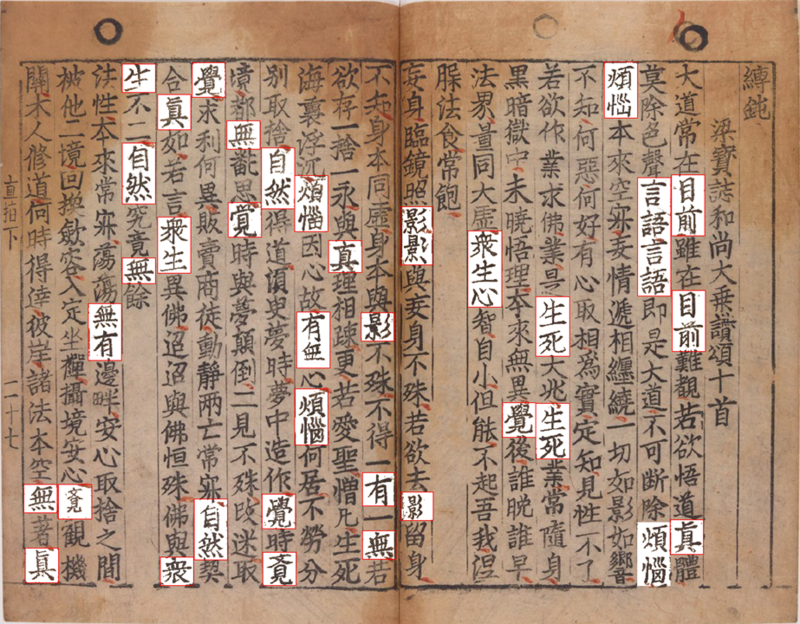 縛鈍
梁寶誌和尚大乘讚頌十首
大道常在目前雖在目前難覩若欲悟道眞體
莫除色聲言語言語即是大道不可斷除煩惱
煩惱本來空寂妄情遞相纏繞一切如影如響
不知何惡何好有心取相爲實定知見性不了
若欲作業求佛業是生死大兆生死業常隨身
黑暗獄中未曉悟理本來無異覺後誰晚誰早
法界量同大虛衆生心智自小但能不起吾我涅
槃法食常飽
妄身臨鏡照影影與妄身不殊若欲去影留身
不知身本同虛身本與影不殊不得一有一無若
欲存一捨一永與真理相疎更若愛聖憎凡生死
海裏浮沉煩惱因心故有無心煩惱何居不勞分
別取捨自然得道須臾夢時夢中造作覺時覺
境都無翻思覺時與夢顛倒二見不殊改迷取
覺求利何異販賣商徒動靜兩亡常寂自然契
合眞如若言衆生異佛迢迢與佛恒殊佛與衆
生不二自然究竟無餘
法性本來常寂蕩蕩無有邊畔安心取捨之間
被他二境回換斂容入定坐禪攝境安心覺觀機
關木人修道何時得達彼岸諸法本空無著眞
直指下 二十七